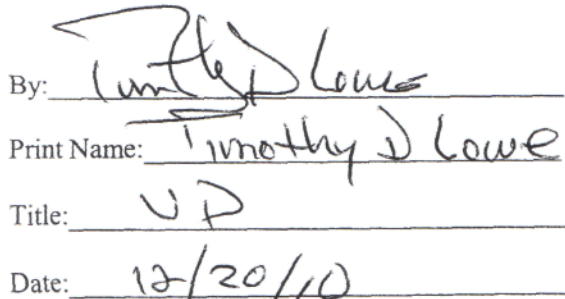 By: Timothy D Lowe
Print Name: Timothy D Lowe
Title: VP
Date: 12/20/10